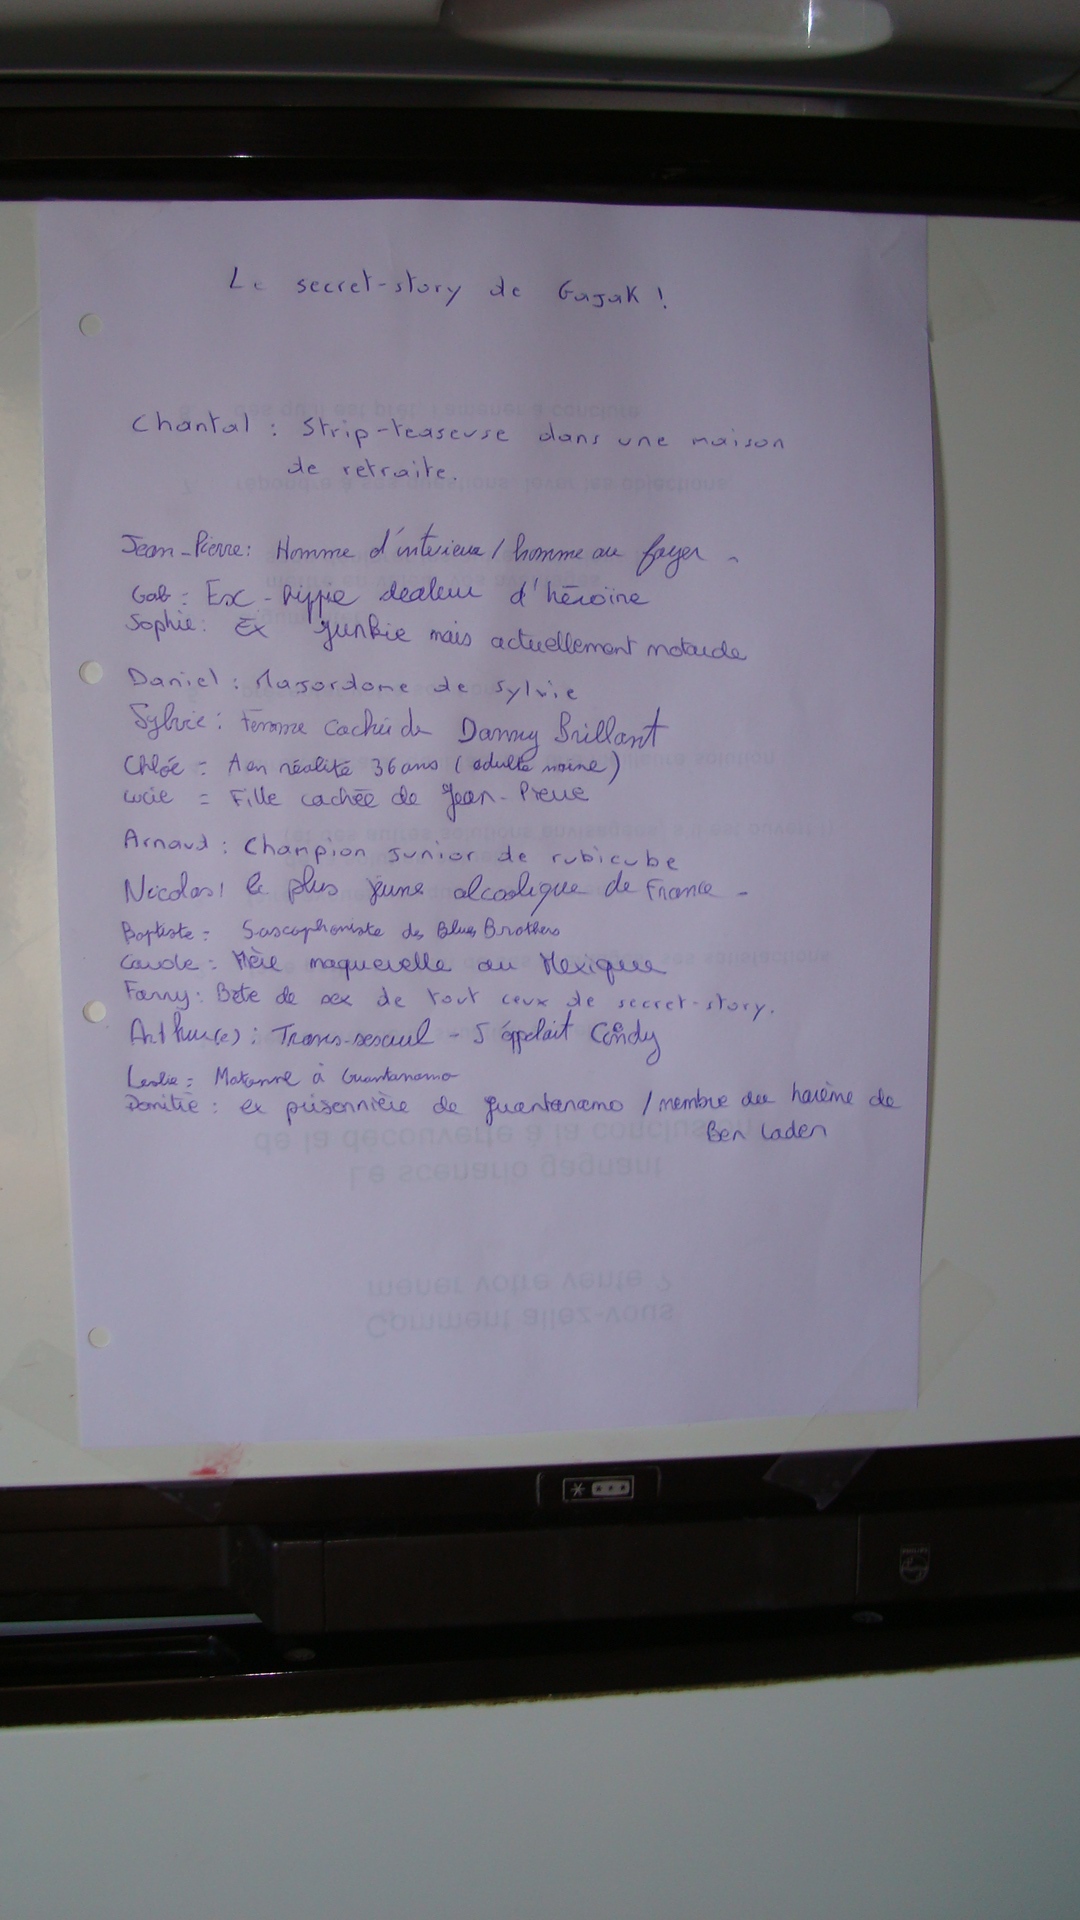 Le secret-story de Gajak !
Chantal : Strip-teaseuse dans une maison
de retraite.
Jean-Pierre : Homme d'intérieur / homme au foyer -
Gab : Ex-hippie dealeur d'héroïne
Sophie : Ex junkie mais actuellement motarde
Daniel : Majordome de Sylvie
Sylvie : femme cachée de Danny Brillant
Chloé : A en réalité 36 ans (adulte naine)
Lucie = Fille cachée de Jean-Pierre
Arnaud : Champion junior de rubicube
Nicolas : le plus jeune alcoolique de France -
Baptiste : Saxophoniste des Blues Brothers
Carole : Mère maquerelle au Mexique
Fanny : Bête de sex de tout ceux de secret-story.
Arthur(e) : Trans-sexuel - S'appelait Cindy
Leslie : Matonne à Guantanamo
: ex prisonnière de guantanamo / membre du harème de
Ben Laden
Le scenario gagnant
de la découverte à la conclusion
Comment allez-vous
mener votre vente ?
PHILIPS